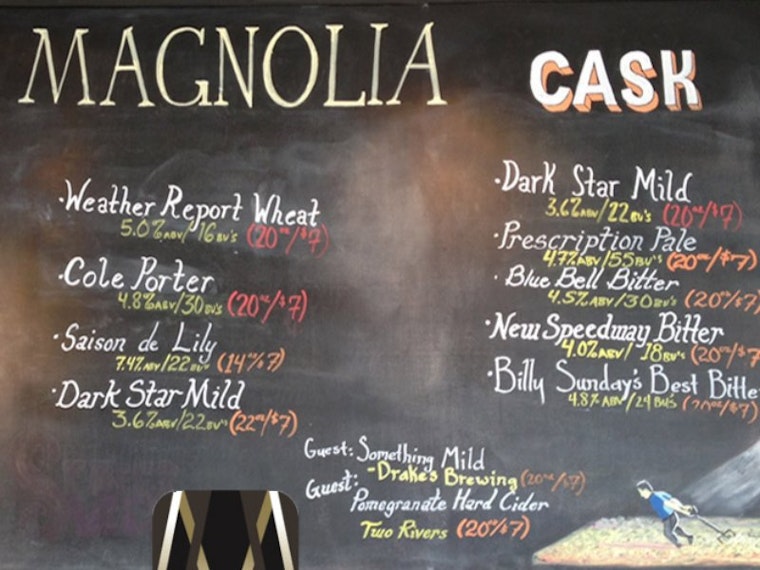 MAGNOLIA
·Weather Report Wheat
5.0% ABV/ 16 BU's (20oz/$7)
·Cole Porter
4.8% ABV/30 BU's (20oz/$7)
·Saison de Lily
7.4% ABV/22 BU's (14oz/7)
·Dark Star Mild
3.6% ABV/22 BU's (22oz/$7)
CASK
·Dark Star Mild
3.6% ABV/22 BU's (20oz/$7)
·Prescription Pale
4.7% ABV/55 BU's (20oz/$7)
·Blue Bell Bitter
4.5% ABV/30 BU's (20oz/$7)
·New Speedway Bitter
4.0% ABV/ 18 BU's (20oz/$7
·Billy Sunday's Best Bitte
4.8% ABV/24 BU's (20oz/$7)
Guest: Something Mild
-Drake's Brewing (20oz/$7)
Guest: Pomegranate Hard Cider
Two Rivers (20oz/$7)